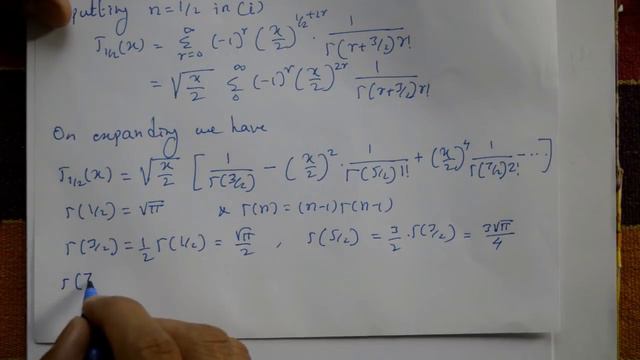 putting n=1/2 in (i)
J_{1/2}(x) = ∑_{r=0}^{∞} (-1)^r (x/2)^{1/2+2r} · 1/(Γ(r+3/2) r!)
= √(x/2) ∑_{0}^{∞} (-1)^r (x/2)^{2r} 1/(Γ(r+3/2) r!)
On expanding we have
J_{1/2}(x) = √(x/2) [ 1/Γ(3/2) - (x/2)^2 · 1/(Γ(5/2) 1!) + (x/2)^4 1/(Γ(7/2) 2!) - ... ]
Γ(1/2) = √π & Γ(n) = (n-1) Γ(n-1)
Γ(3/2) = 1/2 Γ(1/2) = √π/2 , Γ(5/2) = 3/2 · Γ(3/2) = 3√π/4
Γ(7